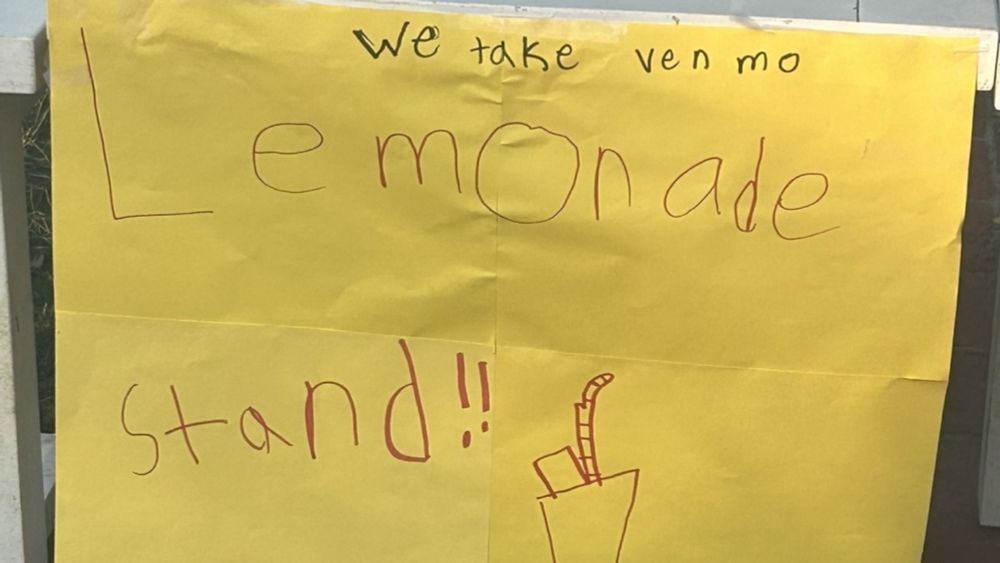 We take ven mo
Lemonade
Stand!!